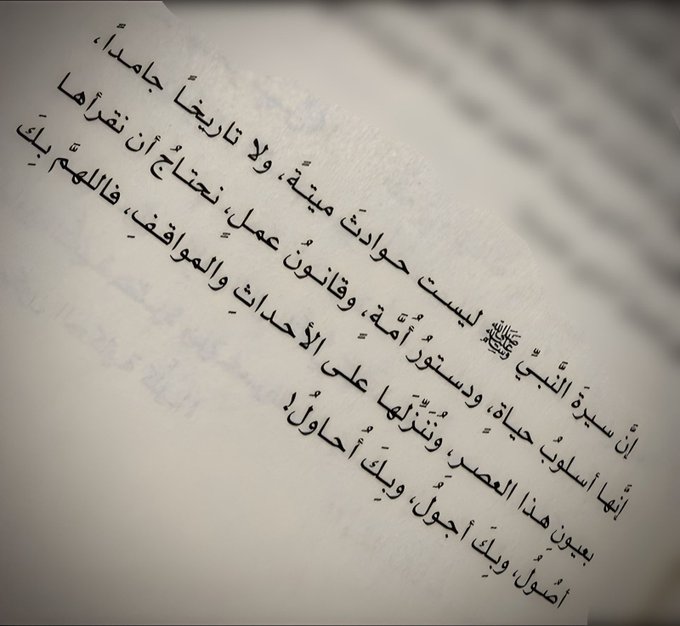 إنَّ سيرةَ النَّبيِّ ﷺ ليست حوادثَ ميتةً، ولا تاريخاً جامداً،
إنَّها أسلوبُ حياةٍ، ودستورُ أُمَّةٍ، وقانونُ عملٍ، نحتاجُ أن نقرأها
بعيونِ هذا العصرِ، ونُنَزِّلَها على الأحداثِ والمواقفِ، فاللهمَّ بِكَ
أصُولُ، وبِكَ أجولُ، وبِكَ أُحاولُ!